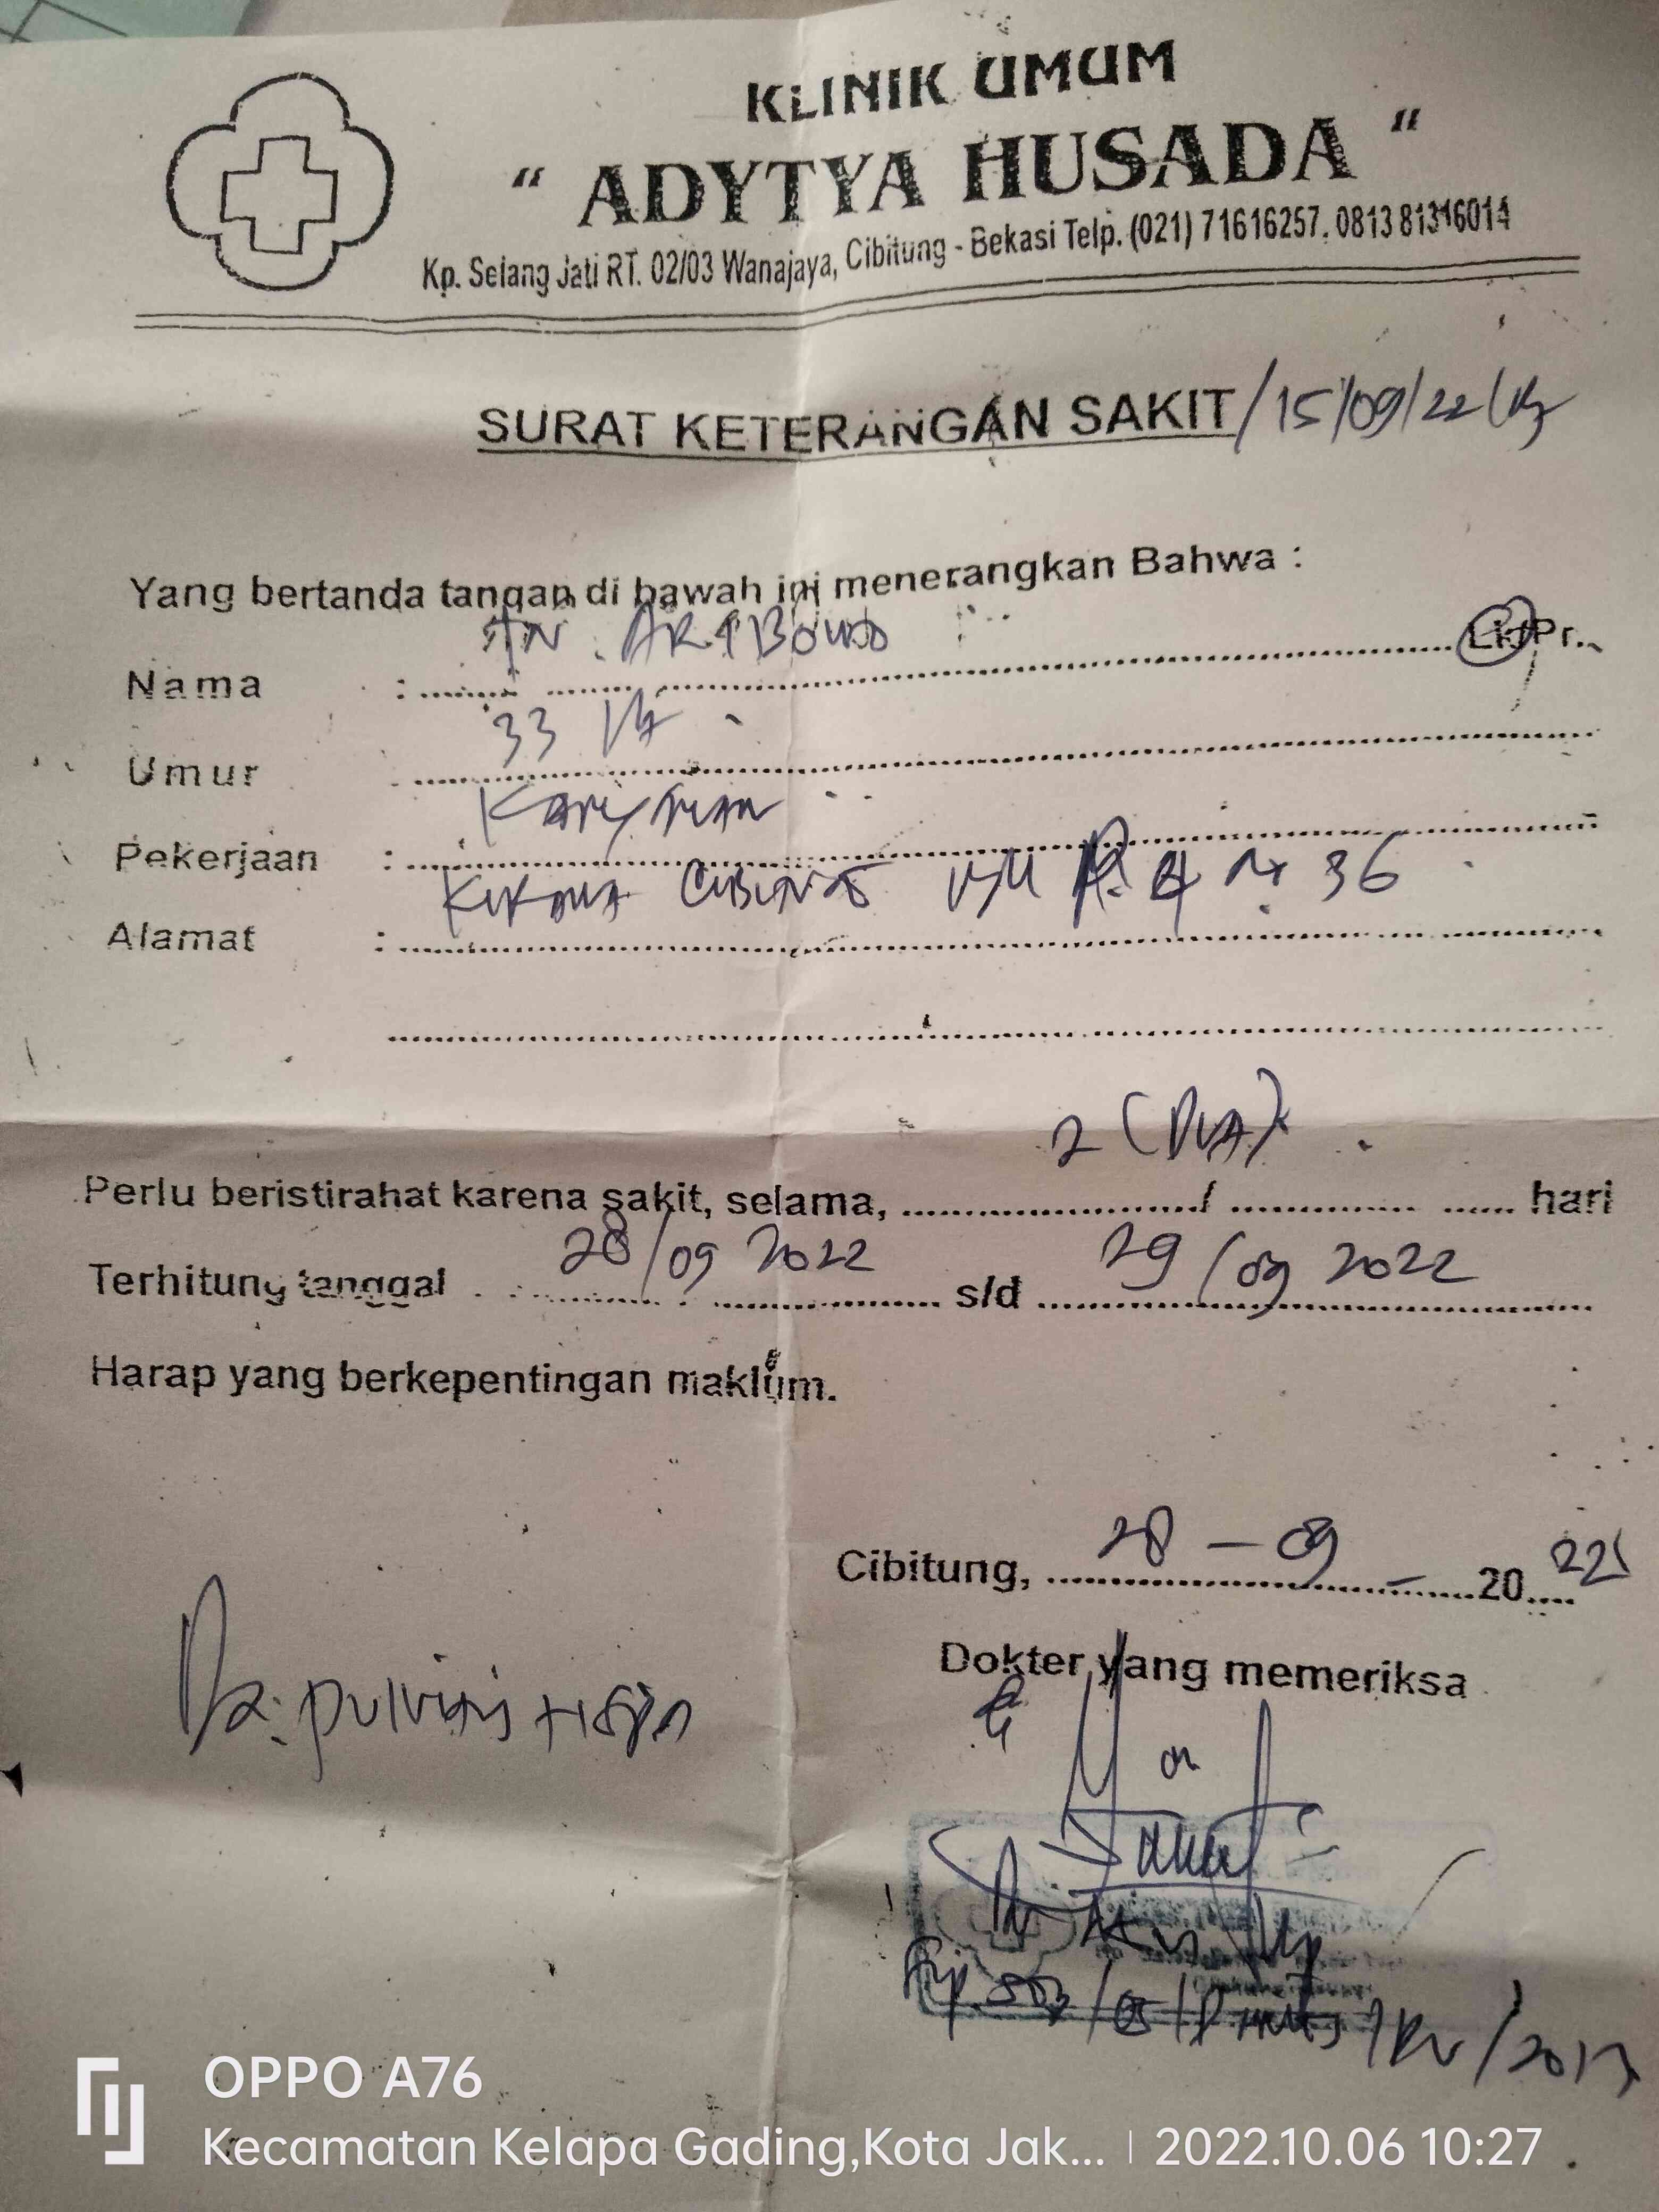 KLINIK UMUM
" ADYTYA HUSADA "
Kp. Selang Jati RT. 02/03 Wanajaya, Cibitung - Bekasi Telp. (021) 71616257. 0813 81316014
SURAT KETERANGAN SAKIT /15/09/22/
Yang bertanda tangan di bawah ini menerangkan Bahwa :
Nama : TN. ARIBOWO Lk/Pr.
Umur 33
Pekerjaan : Karyawan
Alamat : 36
Perlu beristirahat karena sakit, selama, 2 (DUA) / hari
Terhitung tanggal 28/09 2022 s/d 29/09 2022
Harap yang berkepentingan maklum.
Cibitung, 28 - 09 - 20 22
Dokter yang memeriksa
OPPO A76
Kecamatan Kelapa Gading,Kota Jak... | 2022.10.06 10:27